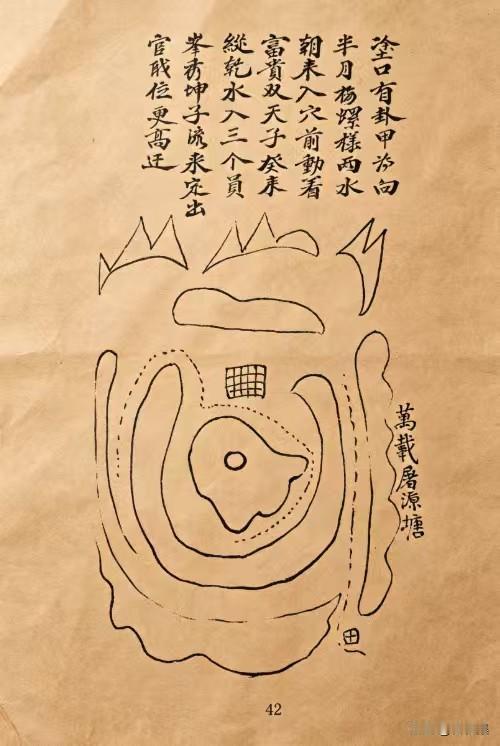 塗口有卦甲为向
半月梅螺樣两水
朝来入穴前動着
富貴双天子癸来
縱乾水入三个員
峯秀坤子溪来定出
官戝位更高迁
萬載屠源塘
田
42